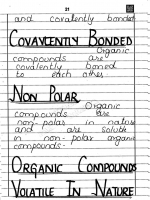 21
and covalently bonded
COVALENTLY BONDED
Organic
compounds are
covalently boned
to each other.
NON POLAR
Organic
compounds are
non-polar in nature
and are soluble
in non-polar organic
compounds.
ORGANIC COMPOUNDS
VOLATILE IN NATURE